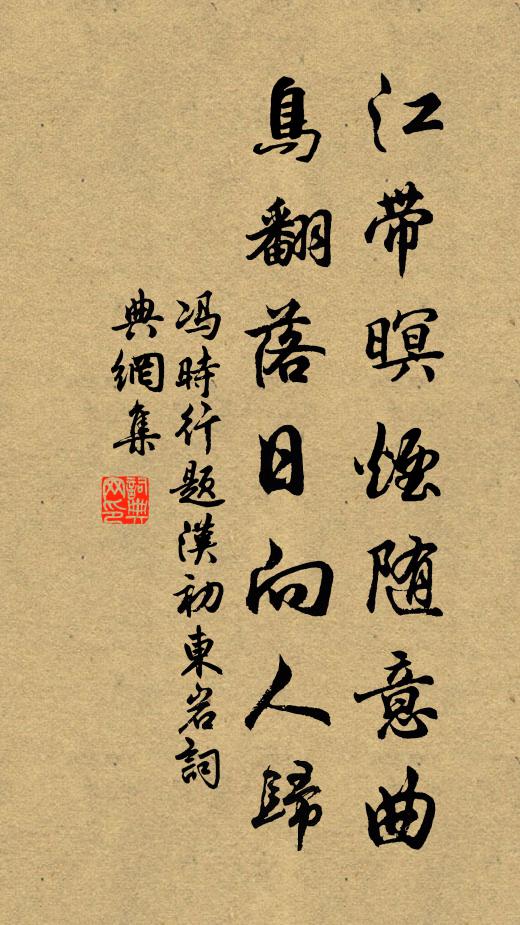 江带暝煙随意曲
鳥翻落日向人歸
冯時行題漢初東岩詞
典網集
詞典网印